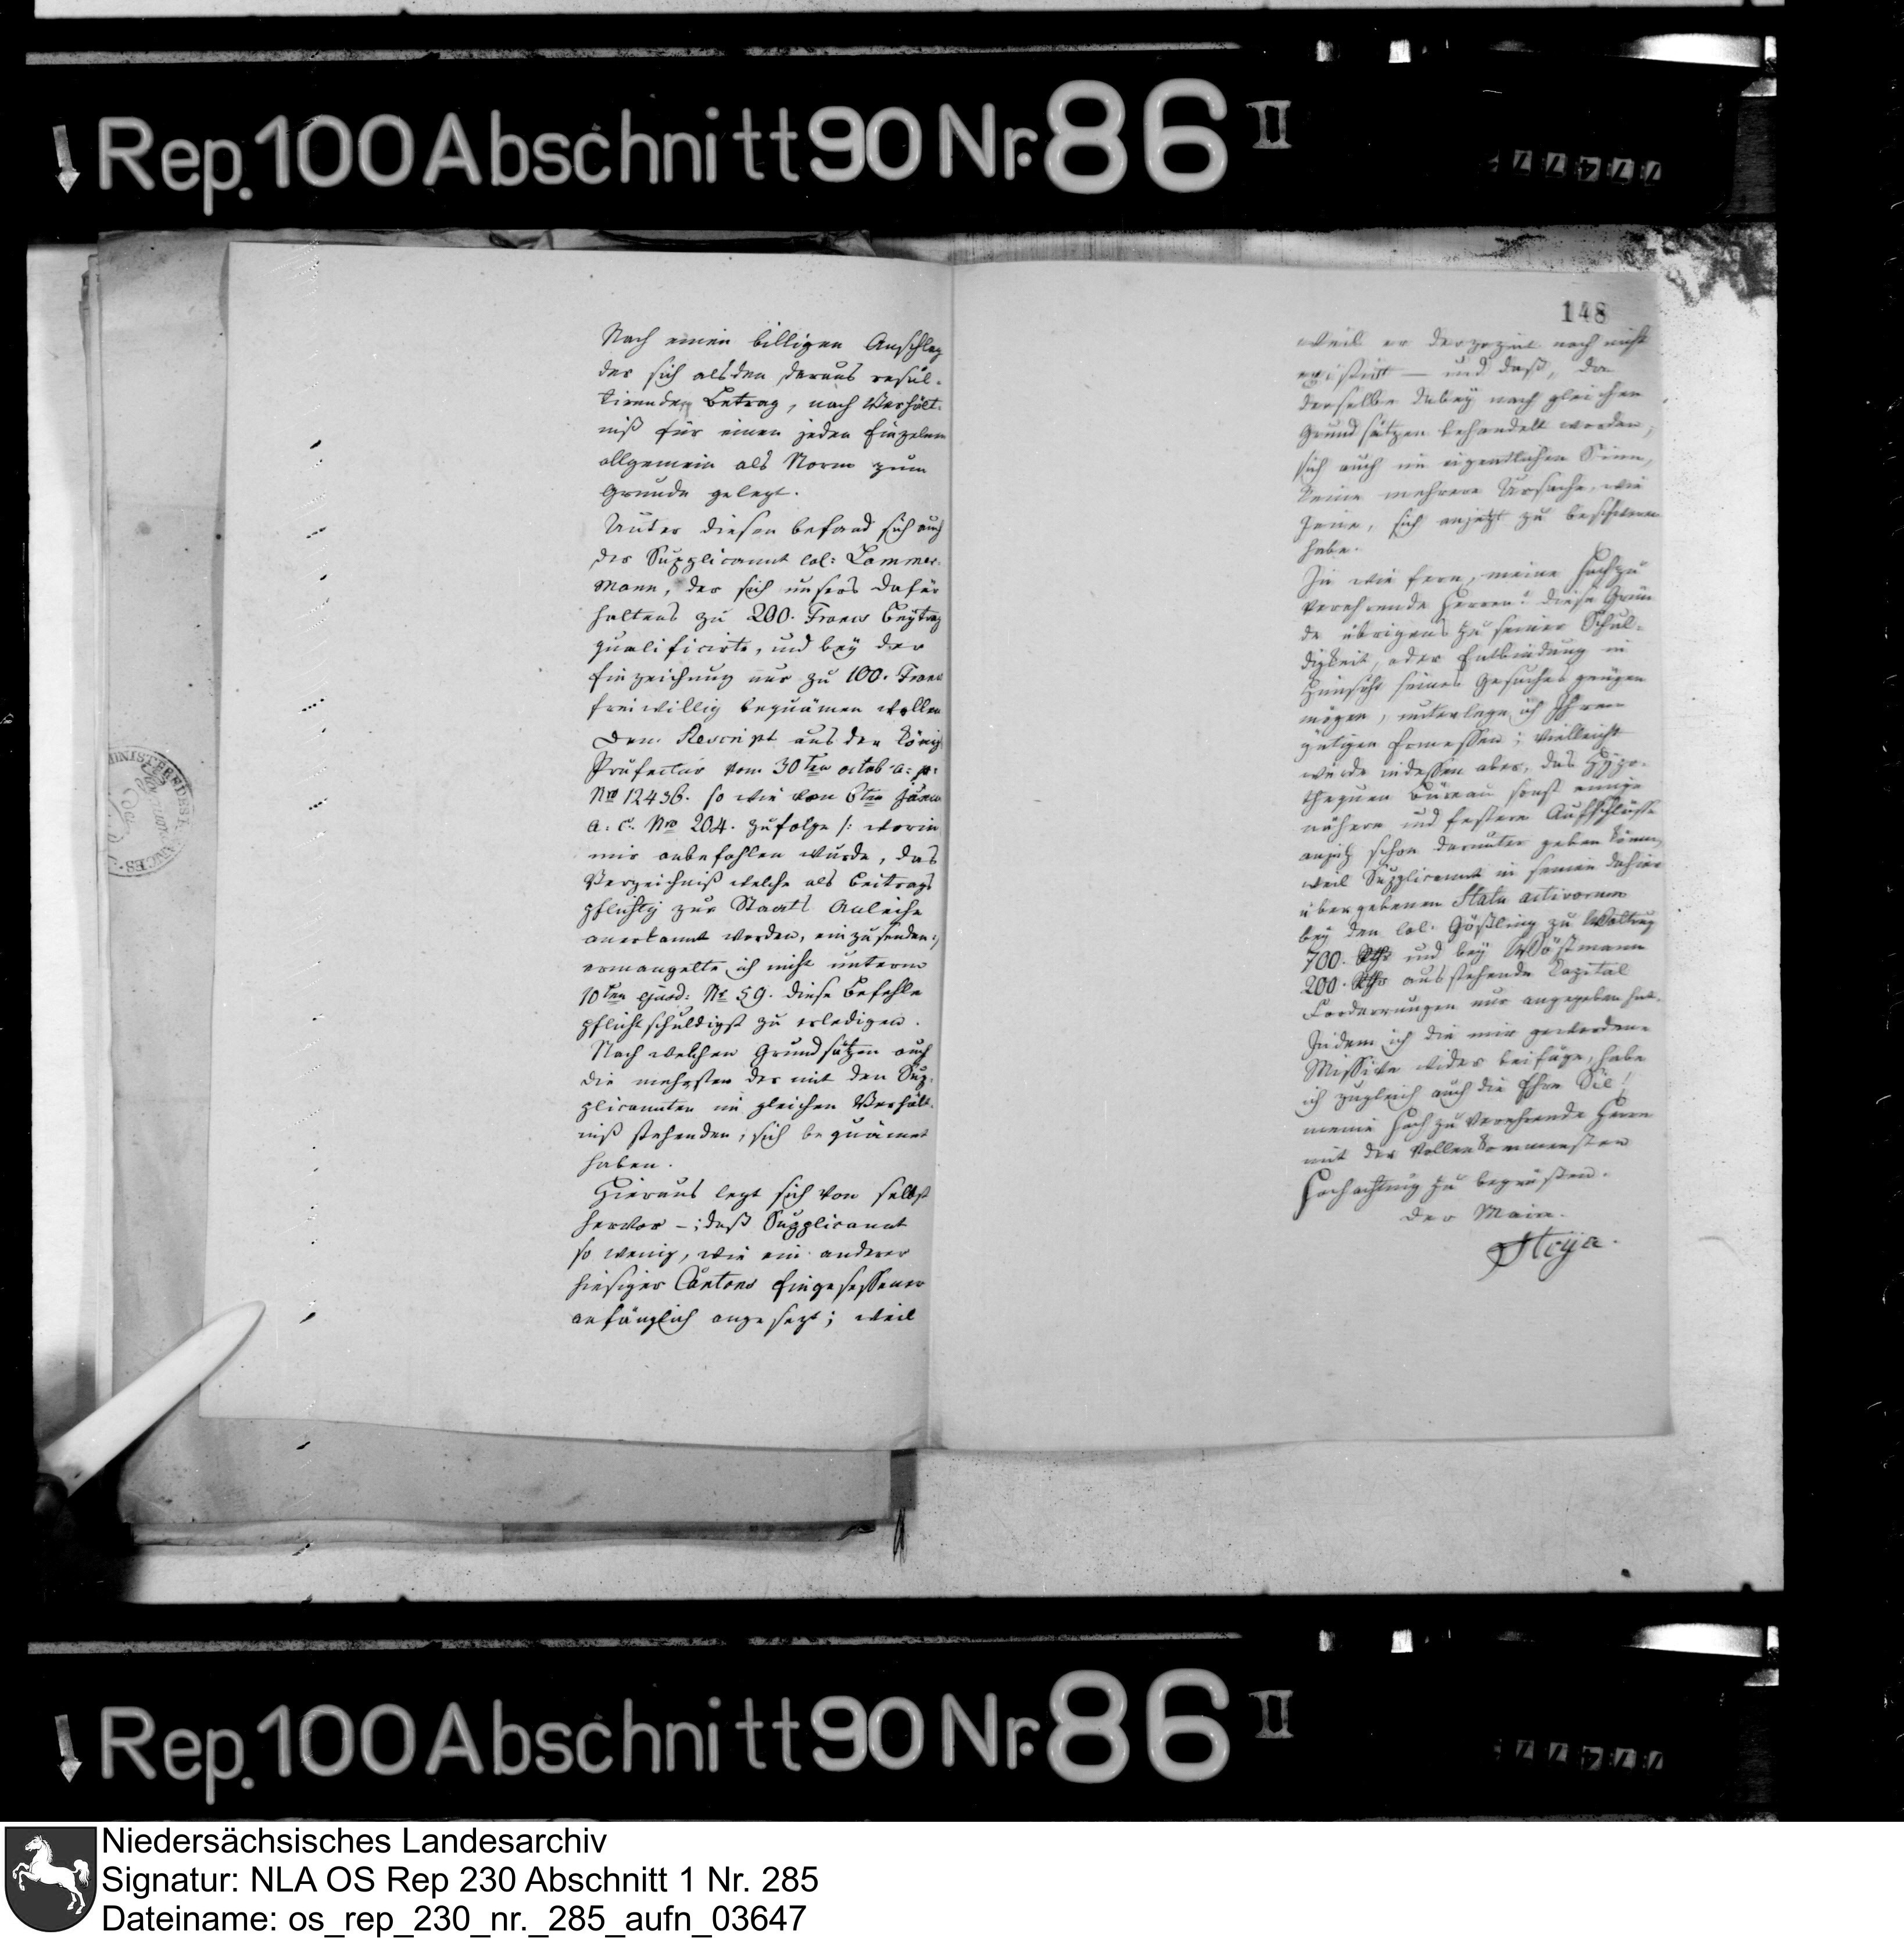 Rep. 100 Abschnitt 90 Nr. 86 II
Nach einen billigen Anschlag
der sich alsden daraus resul-
tirenden Betrag, nach Verhält-
niß für einen jeden Einzelnen
allgemein als Norm zum
Grunde gelegt.
Unter diesen befand sich auch
der Supplicannt Col: Lammer-
mann, der sich unsers dafür
haltens zu 200. Francs Beytrag
qualificirte, und bey der
Einzeichnung nur zu 100. Francs
freiwillig bequämen wollen
Dem Rescript aus der König
Präfectur vom 30ten octob a: p:
Nro 12436. so wie vom 6ten Januar
a: c: Nro 204. zufolge /: worin
mir anbefohlen wurde, das
Verzeichniß welche als Beitrags
pflichtig zur Staats Anleihe
anerkannt worden, einzusenden :/
ermangelte ich nicht unterm
10ten ejusd: Nr 59. diese Befehle
pflichtschuldigst zu erledigen.
Nach welchen Grundsätzen auch
die mehrsten der mit den Sup-
plicannten im gleichen Verhält-
niß stehenden, sich bequämet
haben.
Hieraus legt sich von selbst
hervor -; daß Supplicannt
so wenig, wie ein anderer
hiesiger Cantons Eingesessener
anfänglich angesezt; weil
148
weil er derzezeit noch nicht
existirt — und daß, da
derselbe dabey nach gleichen
Grundsätzen behandelt worden,
sich auch im eigentlichen Sinn,
keine mehrere Ursache, wie
Jene, sich anjetzt zu beschweren
habe.
In wie fern, meine hochzu
verehrende Herren! diese Grün
de übrigens zu seiner Schul-
digkeit, oder Entbindung in
Hinsicht seines Gesuches genügen
mögen, unterlege ich Ihrem
gütigen Ermessen; vielleicht
würde indessen aber, das Hypo-
thequen Büreau sonst einige
nähere und festere Aufschlüsse
anjetz schon darunter geben können,
weil Supplicannt in seinem dahier
übergebenen Statu activorum
bey den Col. Gößling zu Waltrup
700. Rthr und bey Wöstmann
200. Rthr ausstehende Capital
Forderungen nur angegeben hat.
Indem ich die mir gewordene
Missive wider beifüge, habe
ich zugleich auch die Ehre Sie!
meine hoch zu verehrende Herrn
mit der vollenkommensten
Hochachtung zu begrüßen.
Der Maire.
Rep. 100 Abschnitt 90 Nr. 86 II
Niedersächsisches Landesarchiv
Signatur: NLA OS Rep 230 Abschnitt 1 Nr. 285
Dateiname: os_rep_230_nr._285_aufn_03647